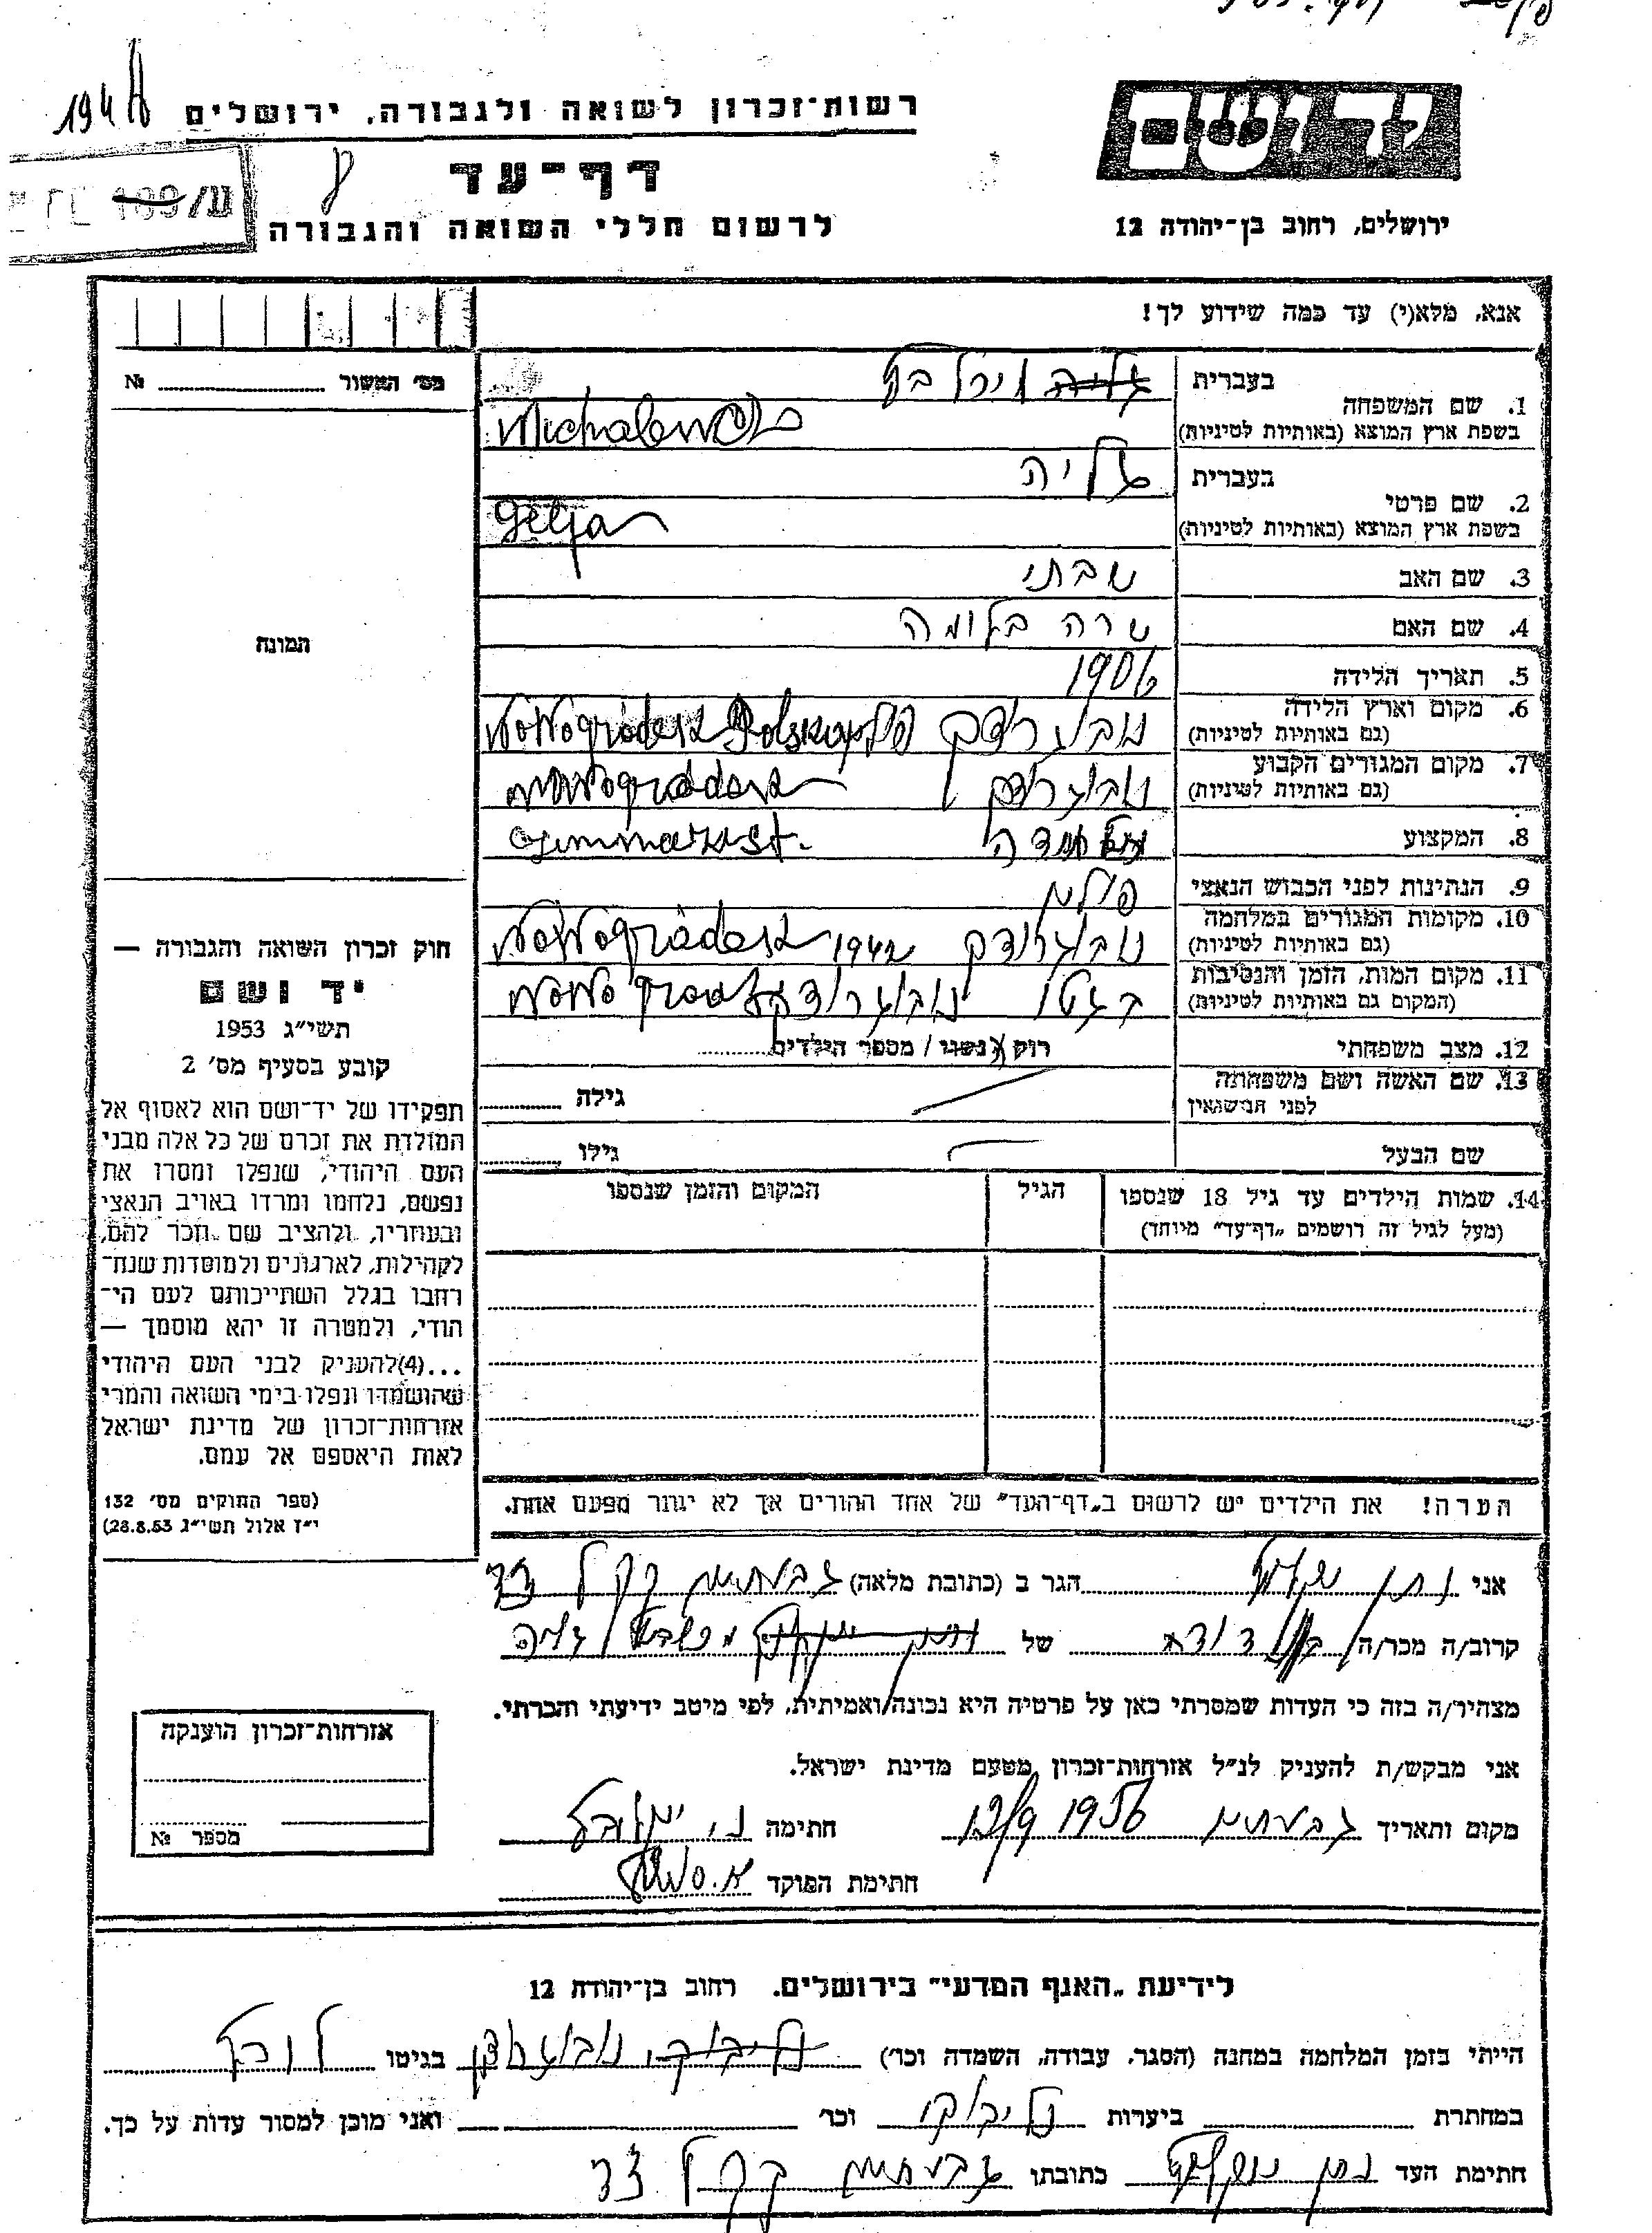 194
רשות־זכרון לשואה ולגבורה, ירושלים
יד ושם
דף־עד
לרשום חללי השואה והגבורה
ירושלים, רחוב בן־יהודה 12
אנא, מלא(י) עד כמה שידוע לך!
מס׳ האשור № 
בעברית
1. שם המשפחה
בשפת ארץ המוצא (באותיות לטיניות)
בעברית גליה
2. שם פרטי
בשפת ארץ המוצא (באותיות לטיניות) Gelja
3. שם האב שבתי
4. שם האם שרה בלומה
5. תאריך הלידה 1906
6. מקום וארץ הלידה נובוגרודק Nowogródek Polska
(גם באותיות לטיניות)
7. מקום המגורים הקבוע נובוגרודק Nowogródek
(גם באותיות לטיניות)
8. המקצוע
9. הנתינות לפני הכבוש הנאצי פולנית
10. מקומות המגורים במלחמה נובוגרודק 1942 Nowogródek
(גם באותיות לטיניות)
11. מקום המות, הזמן והנסיבות בגטו נובוגרודק
(המקום גם באותיות לטיניות)
12. מצב משפחתי רוק / נשוי / מספר הילדים
13. שם האשה ושם משפחתה גילה
לפני הנישואין
שם הבעל גילו
14. שמות הילדים עד גיל 18 שנספו הגיל המקום והזמן שנספו
(מעל לגיל זה רושמים „דף־עד” מיוחד)
הערה! את הילדים יש לרשום ב„דף־העד” של אחד ההורים אך לא יותר מפעם אחת.
תמונה
חוק זכרון השואה והגבורה —
יד ושם
תשי״ג 1953
קובע בסעיף מס׳ 2
תפקידו של יד־ושם הוא לאסוף אל
המולדת את זכרם של כל אלה מבני
העם היהודי, שנפלו ומסרו את
נפשם, נלחמו ומרדו באויב הנאצי
ובעוזריו, ולהציב שם וזכר להם,
לקהילות, לארגונים ולמוסדות שנח־
רבו בגלל השתייכותם לעם הי־
הודי, ולמטרה זו יהא מוסמך —
...(4) להעניק לבני העם היהודי
שהושמדו ונפלו בימי השואה והמרי
אזרחות־זכרון של מדינת ישראל
לאות היאספם אל עמם.
(ספר החוקים מס׳ 132
י״ז אלול תשי״ג 28.8.53)
אני נתן הגר ב (כתובת מלאה) גבעתיים קק״ל
קרוב/ה מכר/ה של
מצהיר/ה בזה כי העדות שמסרתי כאן על פרטיה היא נכונה ואמיתית, לפי מיטב ידיעתי והכרתי.
אני מבקש/ת להעניק לנ״ל אזרחות־זכרון מטעם מדינת ישראל.
מקום ותאריך גבעתיים 12/9 1956 חתימה
חתימת הפוקד
אזרחות־זכרון הוענקה
מספר №
לידיעת „האגף המדעי” בירושלים. רחוב בן־יהודה 12
הייתי בזמן המלחמה במחנה (הסגר, עבודה, השמדה וכר׳) נובוגרודק בגיטו
במחתרת ביערות נליבוקי וכר׳ ואני מוכן למסור עדות על כך.
חתימת העד נתן כתובתו גבעתיים קק״ל